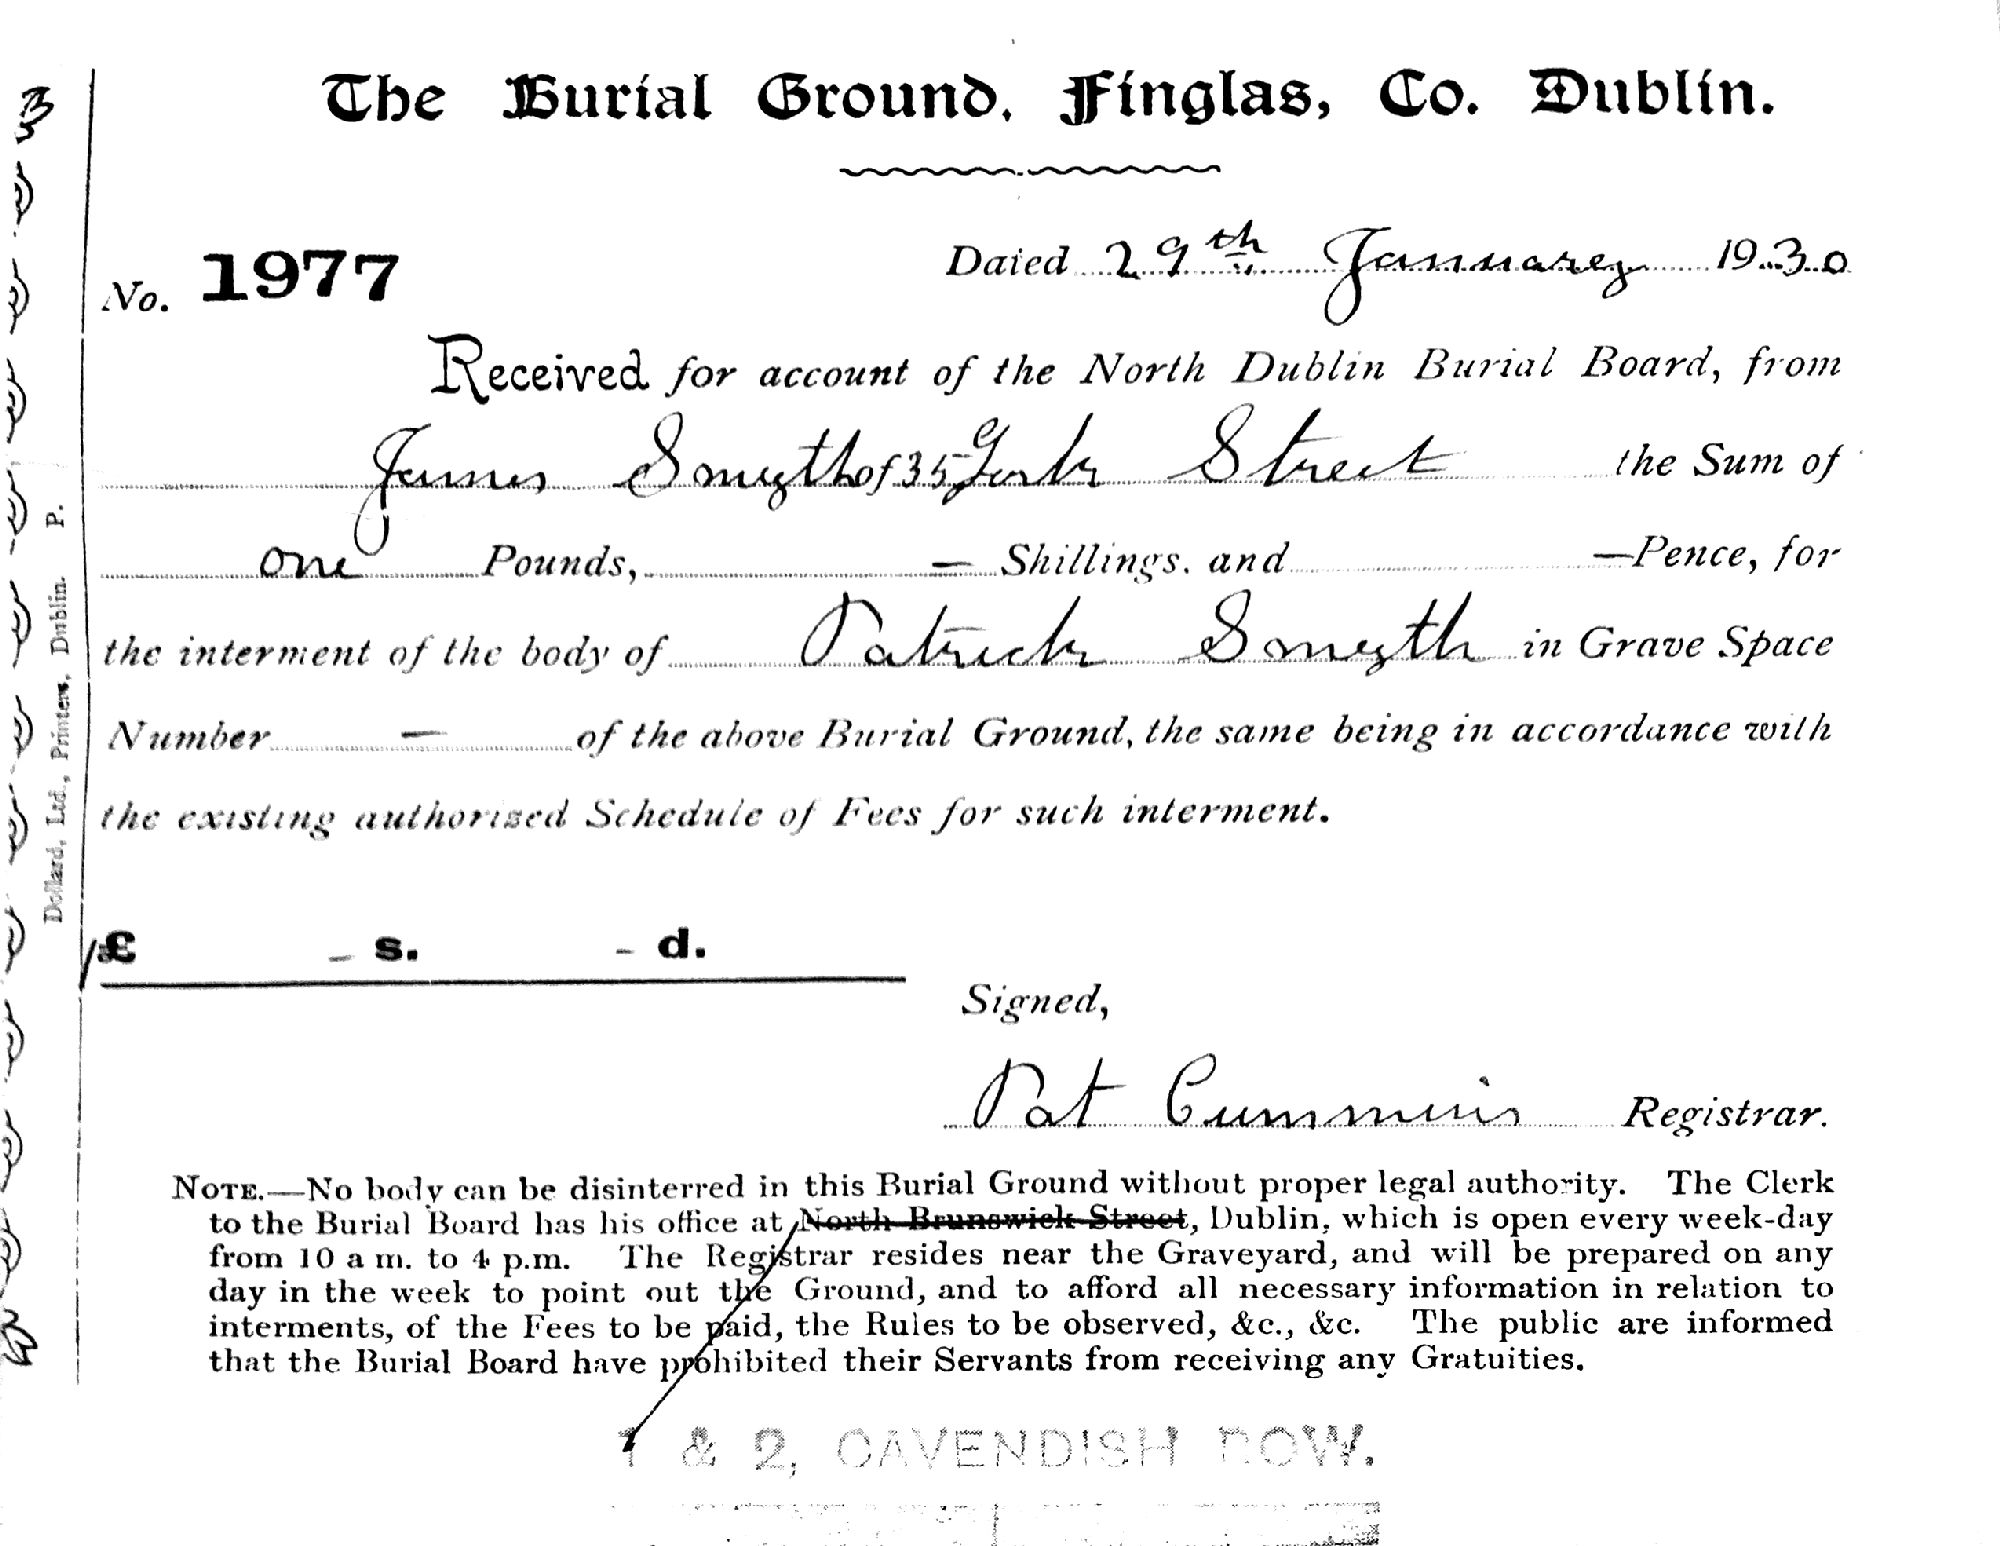 The Burial Ground, Finglas, Co. Dublin.
No. 1977
Dated 29th January 1930
Received for account of the North Dublin Burial Board, from
James Smyth of 35 York Street the Sum of
one Pounds, — Shillings. and — Pence, for
the interment of the body of Patrick Smyth in Grave Space
Number — of the above Burial Ground, the same being in accordance with
the existing authorised Schedule of Fees for such interment.
£1 - s. - d.
Signed,
Pat Cummins Registrar.
NOTE.—No body can be disinterred in this Burial Ground without proper legal authority. The Clerk
to the Burial Board has his office at North Brunswick Street, Dublin, which is open every week-day
from 10 a m. to 4 p.m. The Registrar resides near the Graveyard, and will be prepared on any
day in the week to point out the Ground, and to afford all necessary information in relation to
interments, of the Fees to be paid, the Rules to be observed, &c., &c. The public are informed
that the Burial Board have prohibited their Servants from receiving any Gratuities.
1 & 2, CAVENDISH ROW.
Dollard, Ltd., Printers, Dublin. P.